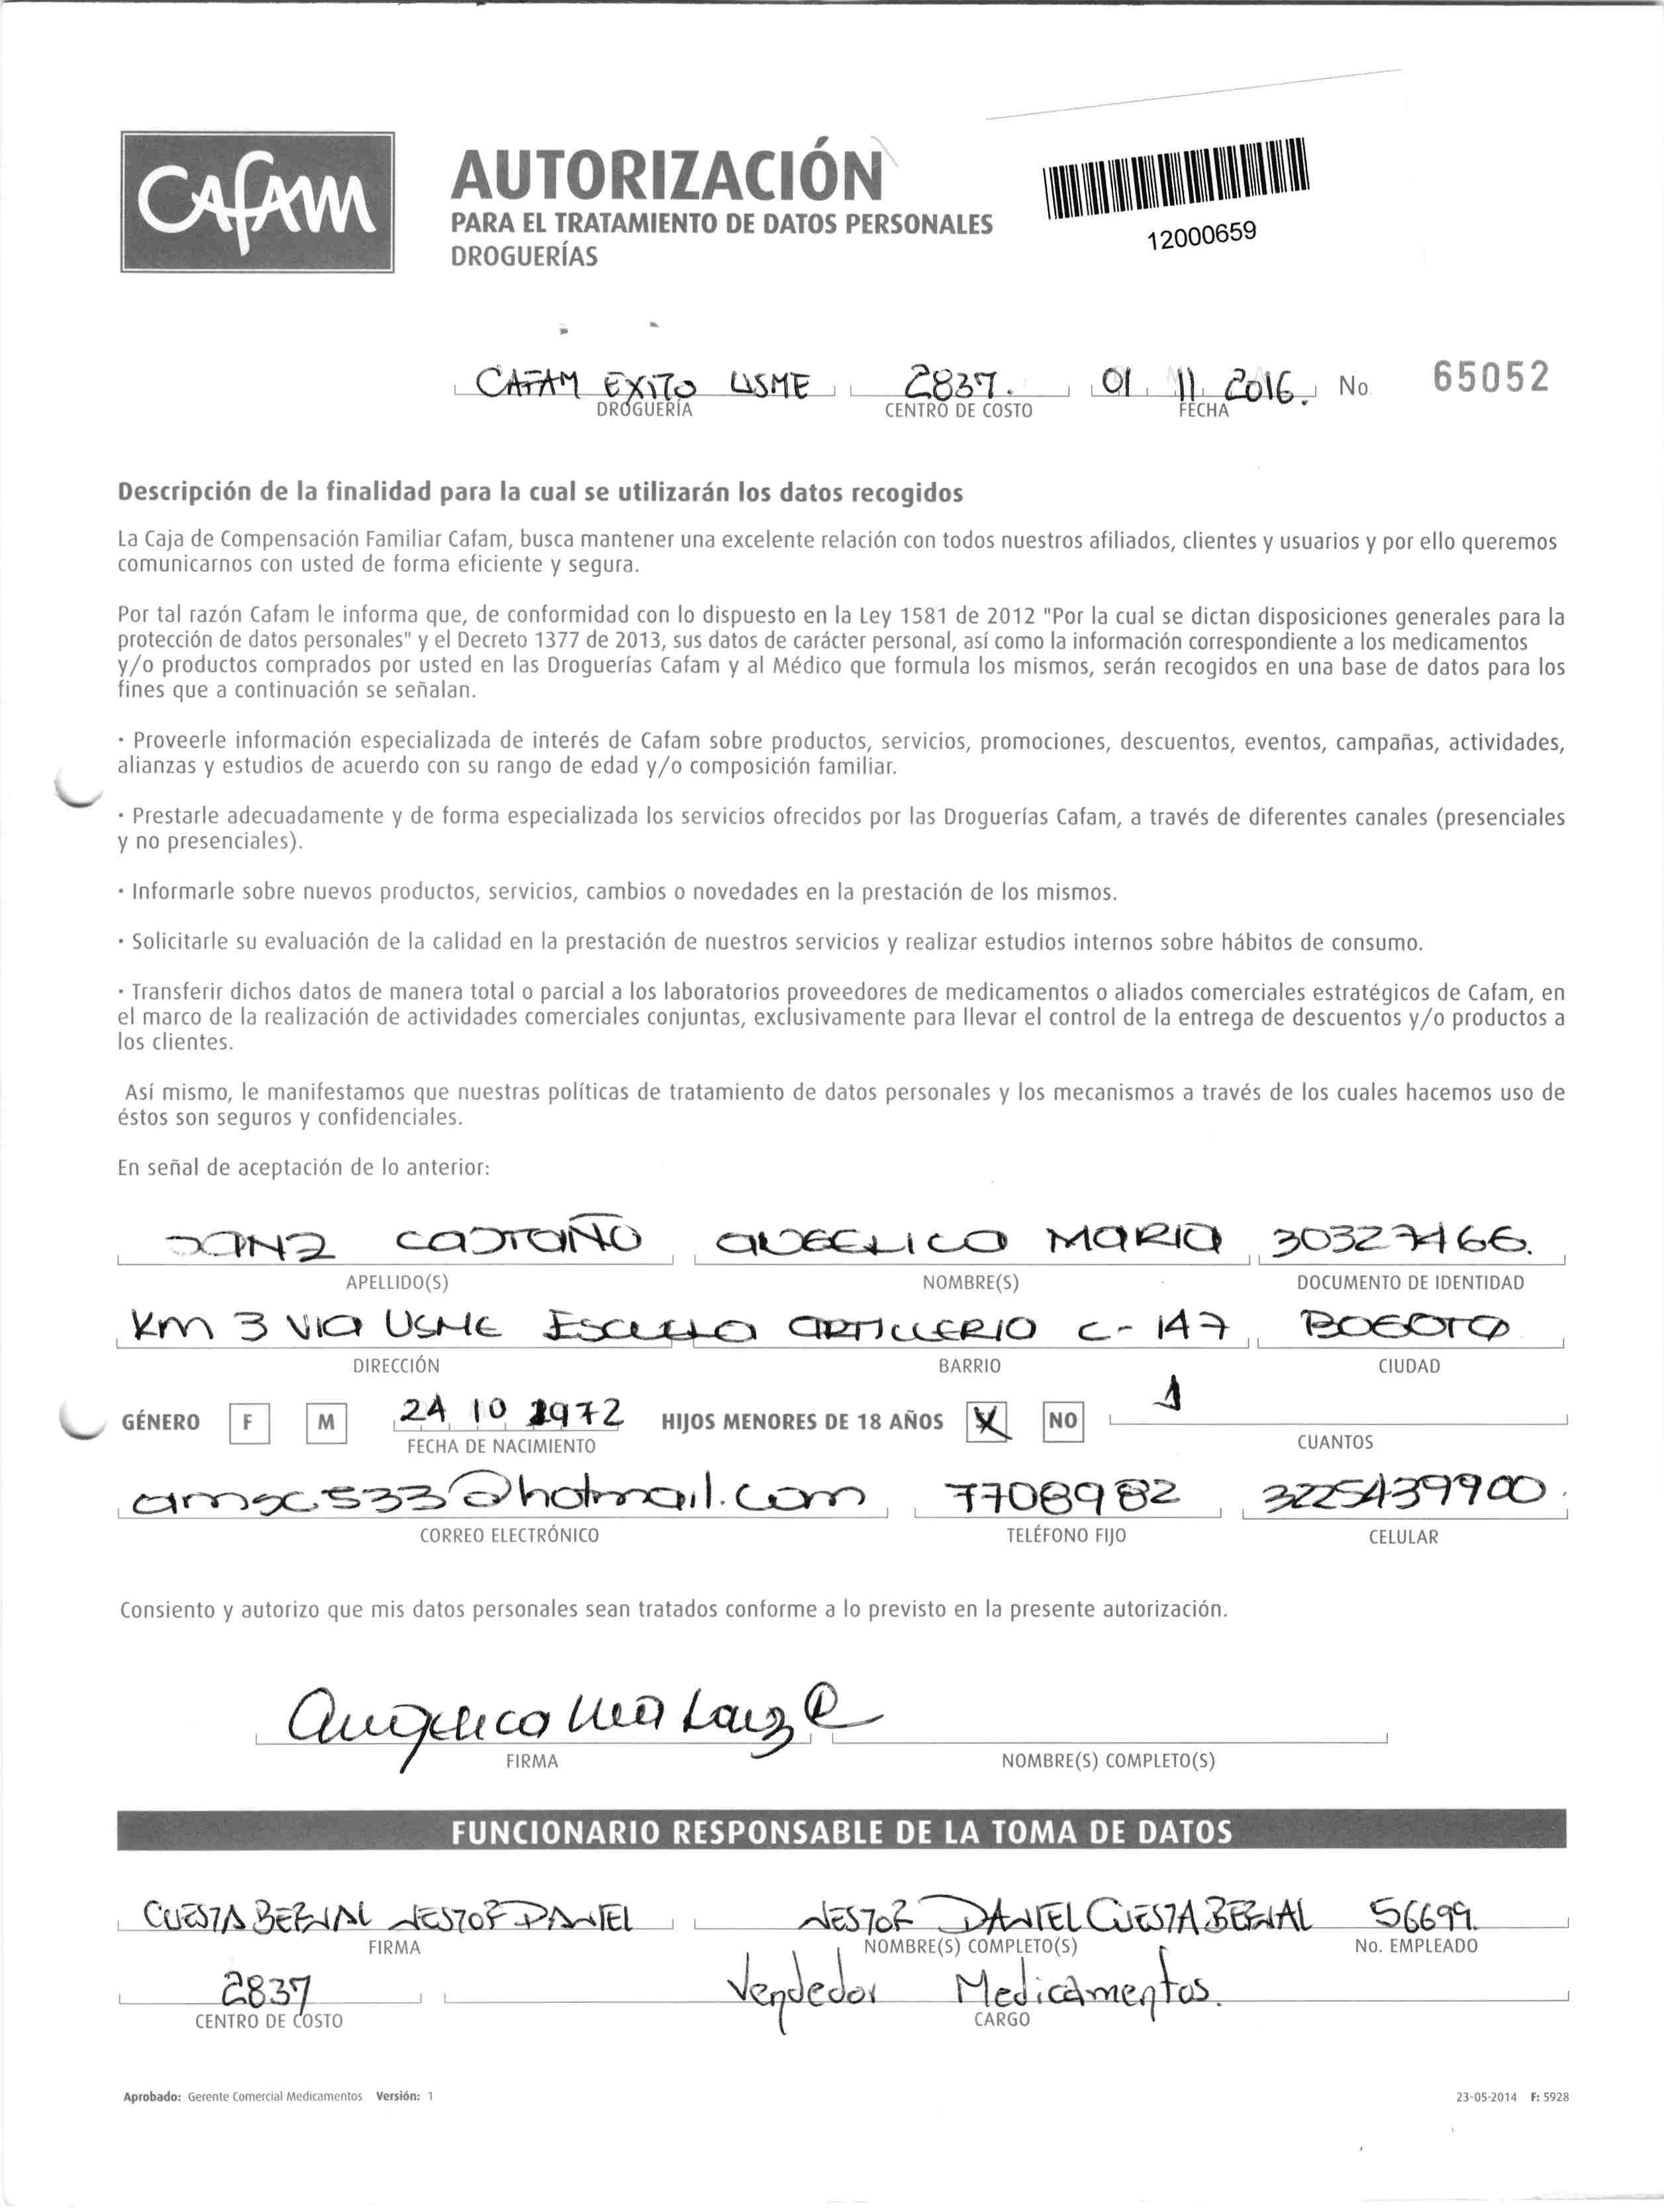 CAFAM
AUTORIZACIÓN
PARA EL TRATAMIENTO DE DATOS PERSONALES
DROGUERÍAS
12000659
CAFAM EXITO USME 2837. 01 11 2016. No. 65052
DROGUERÍA CENTRO DE COSTO FECHA
Descripción de la finalidad para la cual se utilizarán los datos recogidos
La Caja de Compensación Familiar Cafam, busca mantener una excelente relación con todos nuestros afiliados, clientes y usuarios y por ello queremos
comunicarnos con usted de forma eficiente y segura.
Por tal razón Cafam le informa que, de conformidad con lo dispuesto en la Ley 1581 de 2012 "Por la cual se dictan disposiciones generales para la
protección de datos personales" y el Decreto 1377 de 2013, sus datos de carácter personal, así como la información correspondiente a los medicamentos
y/o productos comprados por usted en las Droguerías Cafam y al Médico que formula los mismos, serán recogidos en una base de datos para los
fines que a continuación se señalan.
· Proveerle información especializada de interés de Cafam sobre productos, servicios, promociones, descuentos, eventos, campañas, actividades,
alianzas y estudios de acuerdo con su rango de edad y/o composición familiar.
· Prestarle adecuadamente y de forma especializada los servicios ofrecidos por las Droguerías Cafam, a través de diferentes canales (presenciales
y no presenciales).
· Informarle sobre nuevos productos, servicios, cambios o novedades en la prestación de los mismos.
· Solicitarle su evaluación de la calidad en la prestación de nuestros servicios y realizar estudios internos sobre hábitos de consumo.
· Transferir dichos datos de manera total o parcial a los laboratorios proveedores de medicamentos o aliados comerciales estratégicos de Cafam, en
el marco de la realización de actividades comerciales conjuntas, exclusivamente para llevar el control de la entrega de descuentos y/o productos a
los clientes.
Así mismo, le manifestamos que nuestras políticas de tratamiento de datos personales y los mecanismos a través de los cuales hacemos uso de
éstos son seguros y confidenciales.
En señal de aceptación de lo anterior:
SANZ CASTAÑO ANGELICA MARIA 30327466.
APELLIDO(S) NOMBRE(S) DOCUMENTO DE IDENTIDAD
Km 3 VIA USME ESCUELA ARTILLERIA C-147 BOGOTA
DIRECCIÓN BARRIO CIUDAD
GÉNERO F M 24 10 1972 HIJOS MENORES DE 18 AÑOS X NO 1
FECHA DE NACIMIENTO CUANTOS
amsc533@hotmail.com 7708982 3225439900.
CORREO ELECTRÓNICO TELÉFONO FIJO CELULAR
Consiento y autorizo que mis datos personales sean tratados conforme a lo previsto en la presente autorización.
Angelica Ma Sanz C
FIRMA NOMBRE(S) COMPLETO(S)
FUNCIONARIO RESPONSABLE DE LA TOMA DE DATOS
CUESTA BERNAL NESTOR DANIEL NESTOR DANIEL CUESTA BERNAL 56699.
FIRMA NOMBRE(S) COMPLETO(S) No. EMPLEADO
2837 Vendedor Medicamentos.
CENTRO DE COSTO CARGO
Aprobado: Gerente Comercial Medicamentos Versión: 1 23-05-2014 F: 5928